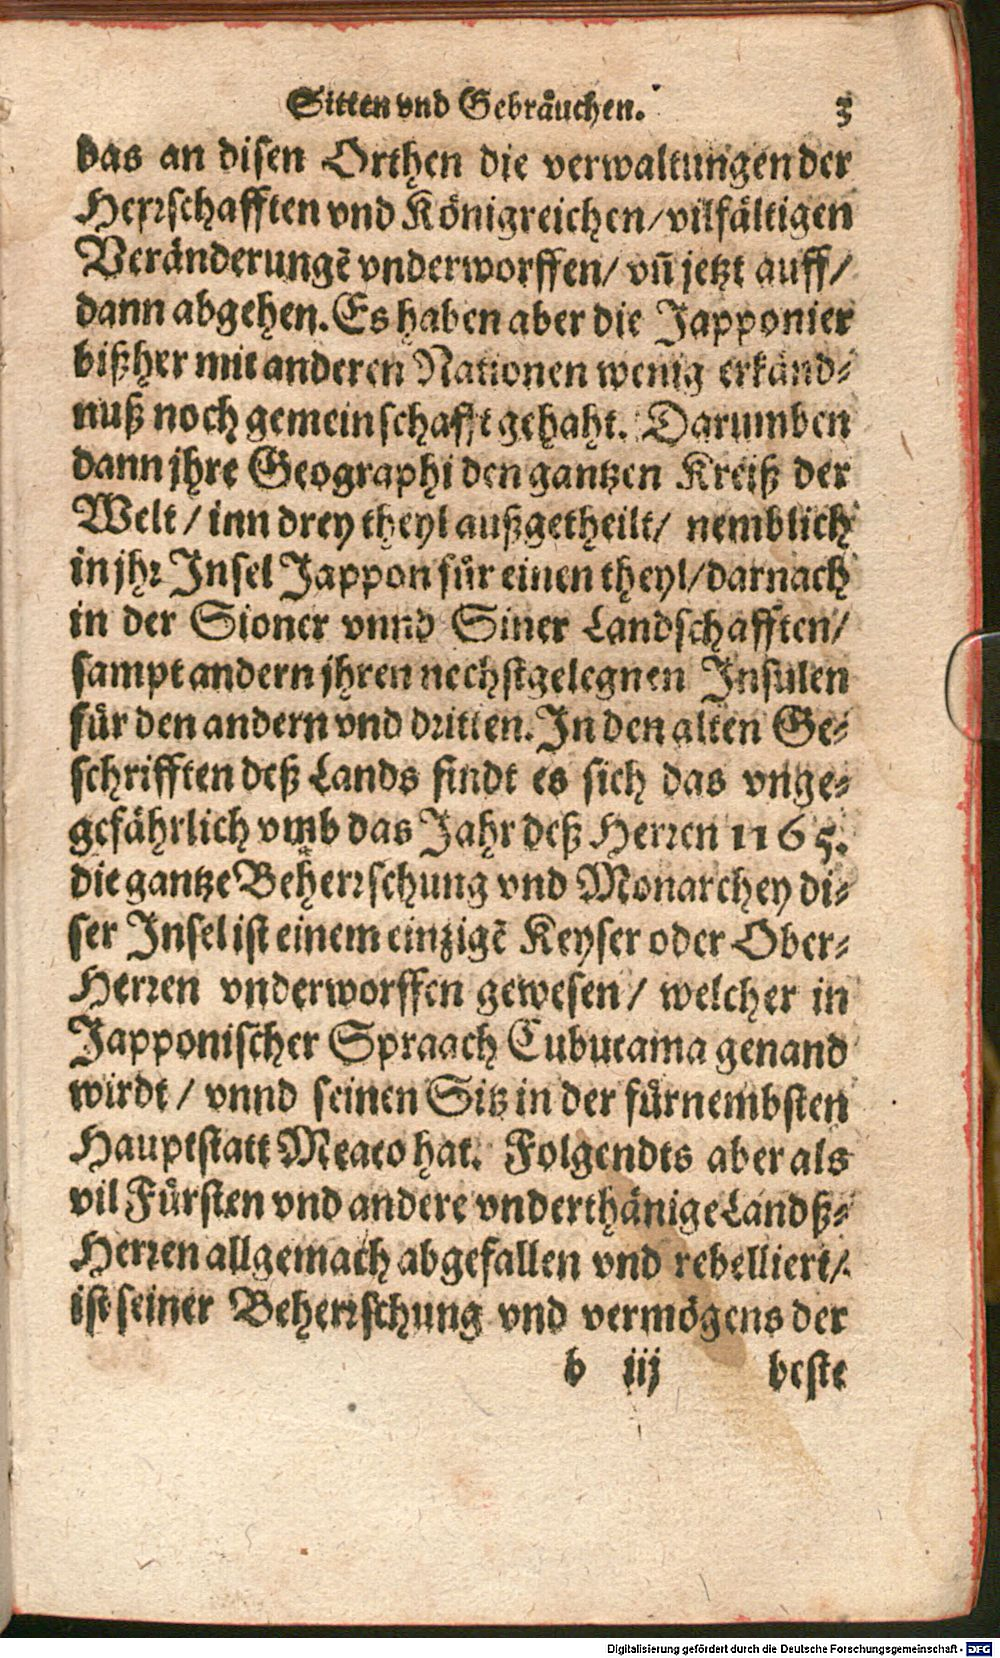 Sitten vnd Gebräuchen. 3
das an disen Orthen die verwaltungen der
Herrschafften vnd Königreichen/ vilfältigen
Veränderungẽ vnderworffen/ vñ jetzt auff/
dann abgehen. Es haben aber die Japponier
bißher mit anderen Nationen wenig erkänd-
nuß noch gemeinschafft gehaht. Darumben
dann jhre Geographi den gantzen Kreiß der
Welt/ inn drey theyl außgetheilt/ nemblich
in jhr Insel Jappon für einen theyl/ darnach
in der Sioner vnnd Siner Landschafften/
sampt andern jhren nechstgelegnen Insulen
für den andern vnd dritten. In den alten Ge-
schrifften deß Lands findt es sich das vnge-
gefährlich vmb das Jahr deß Herren 1165.
die gantze Beherrschung vnd Monarchey di-
ser Insel ist einem einzigẽ Keyser oder Ober-
Herren vnderworffen gewesen/ welcher in
Japponischer Spraach Cubucama genand
wirdt/ vnnd seinen Sitz in der fürnembsten
Hauptstatt Meaco hat. Folgendts aber als
vil Fürsten vnd andere vnderthänige Landß-
Herren allgemach abgefallen vnd rebelliert/
ist seiner Beherrschung vnd vermögens der
b iij beste
Digitalisierung gefördert durch die Deutsche Forschungsgemeinschaft - DFG